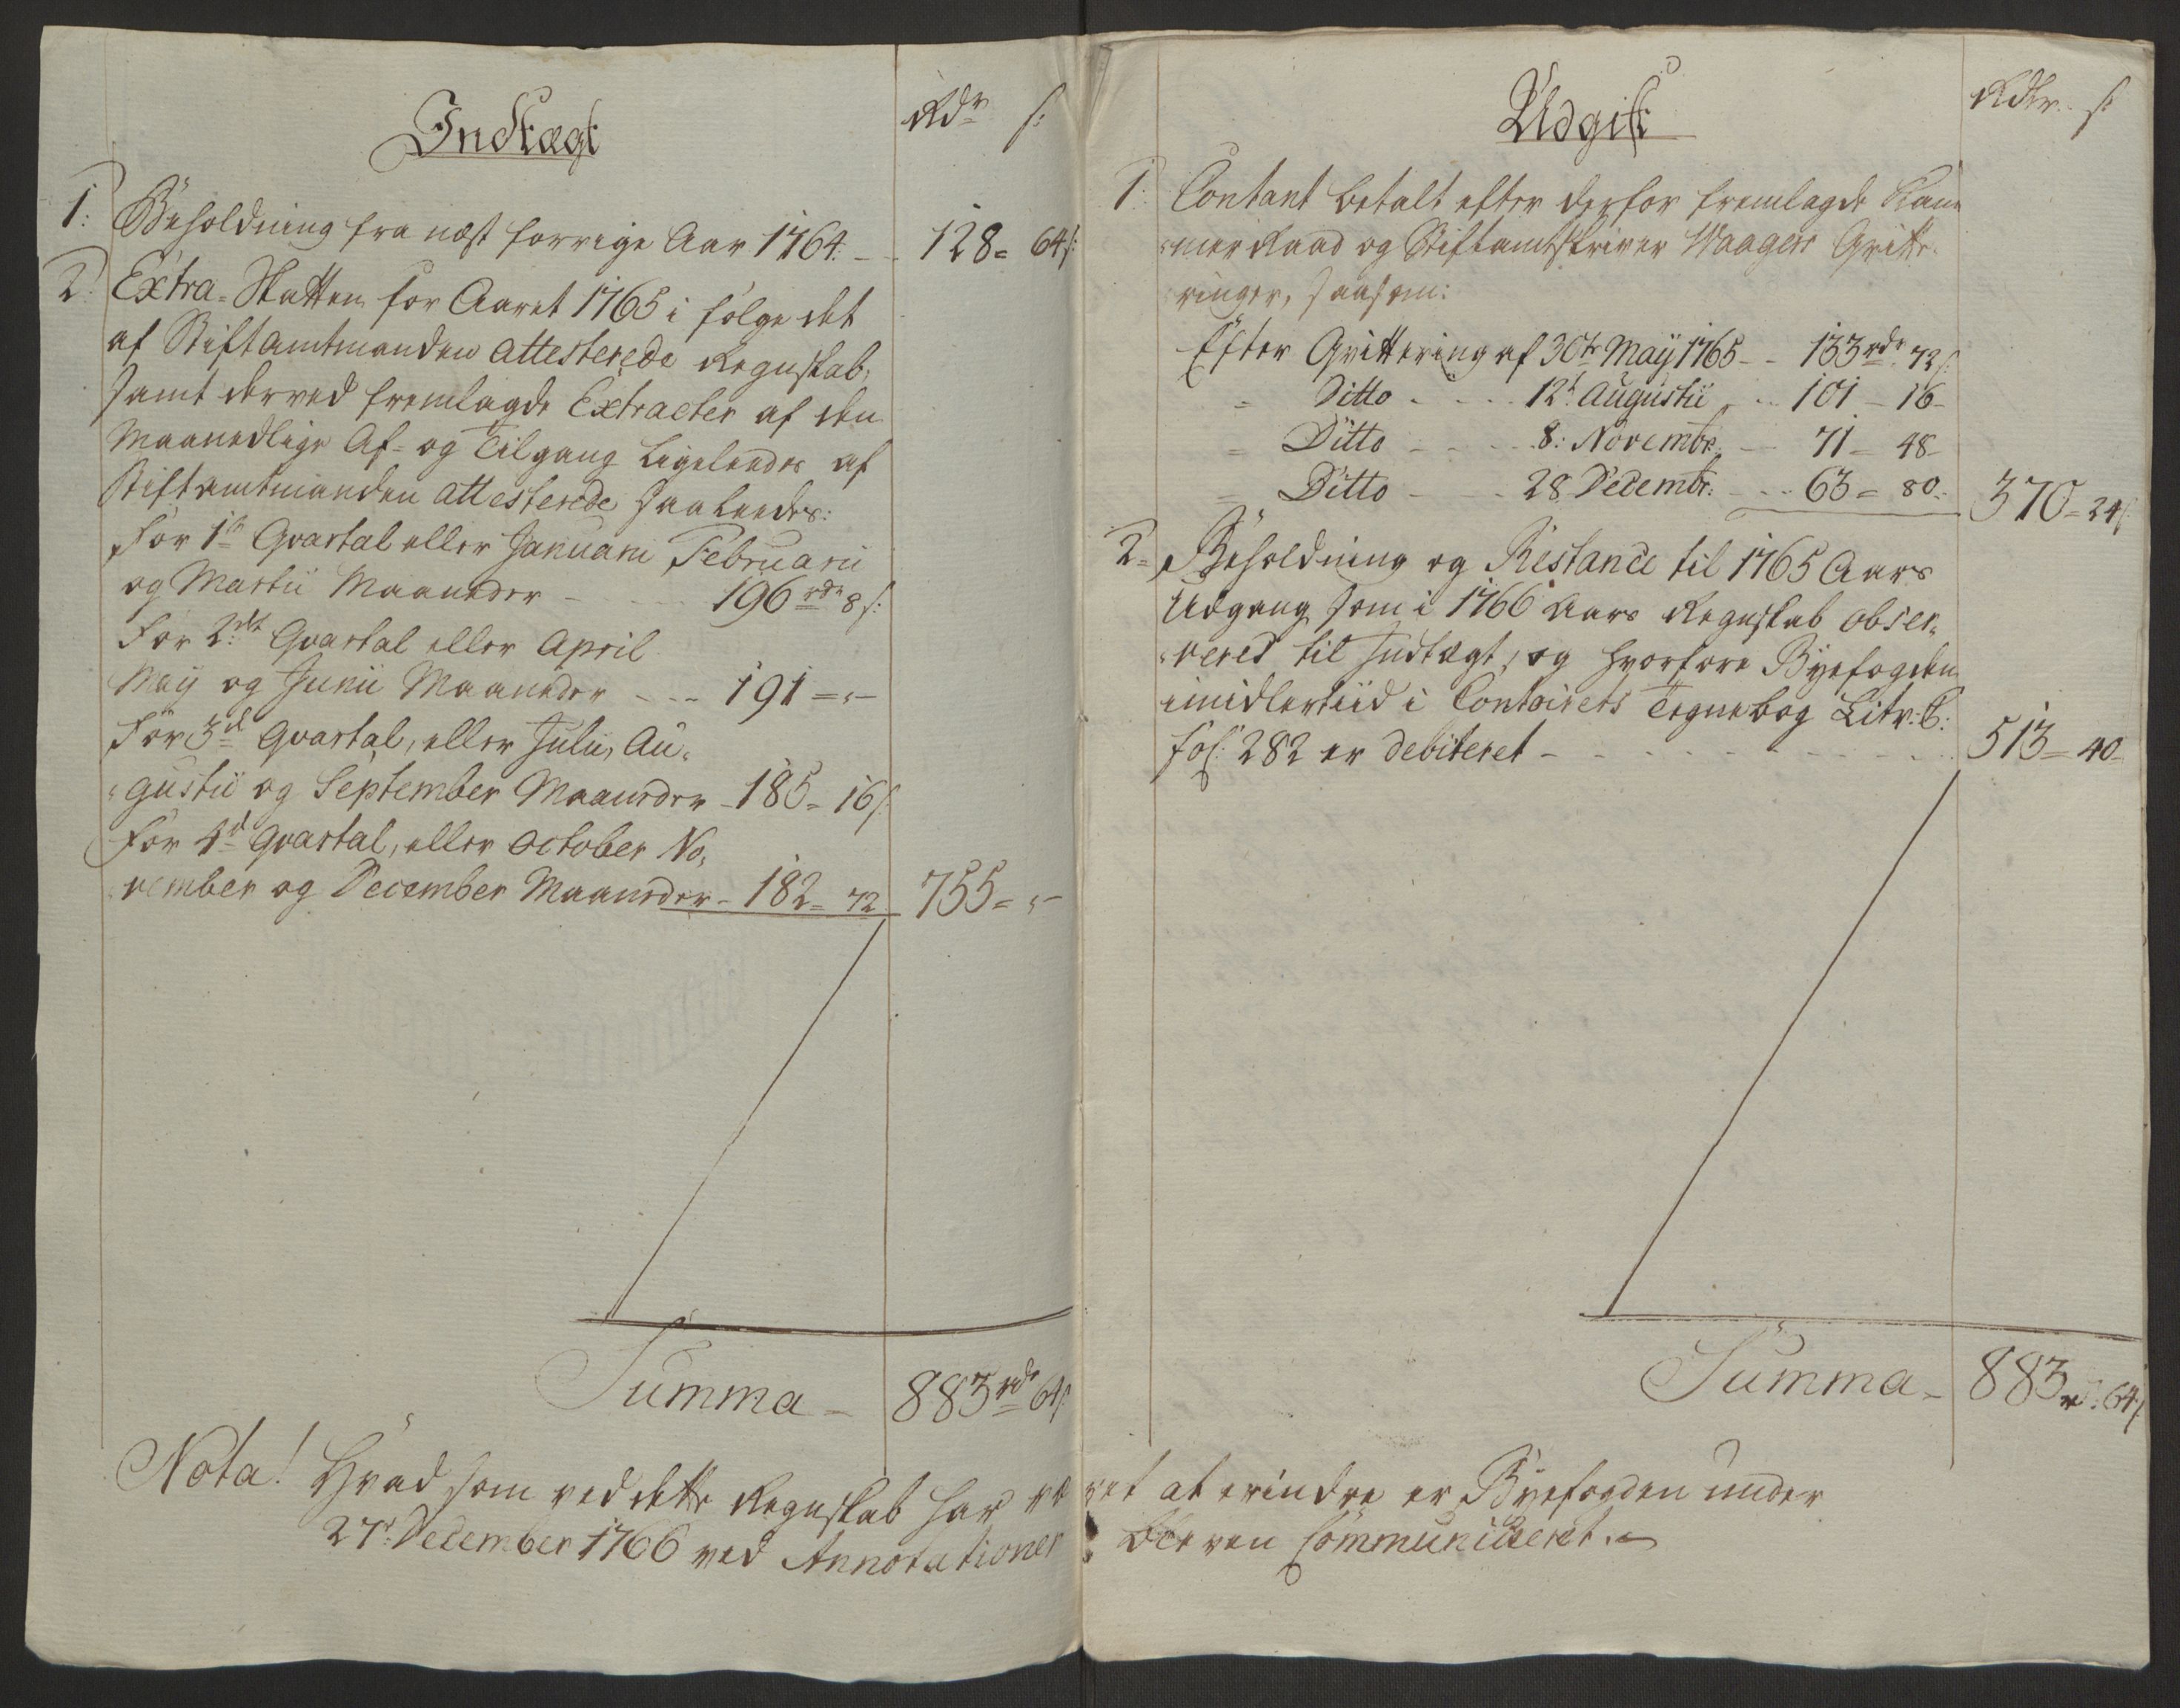 Indtægt
Rdr s:
1: Beholdning fra næst forrige Aar 1764. - - 128 = 64 s:
2: Extra-Skatten for Aaret 1765 i følge det
af Stiftamtmanden attesterede Regnskab,
samt derved fremlagde Extracter af den
Maanedlige Af- og Tilgang ligeledes af
Stiftamtmanden attesterede saaledes:
For 1te Qvartal eller Januarii Februarii
og Martii Maaneder - - - 196 rdr 8 s:
For 2det Qvartal eller April
May og Junii Maaneder - - - 191 = " -
For 3d Qvartal, eller Julii, Au-
gustii og September Maaneder - 185 = 16 s:
For 4d Qvartal, eller October No-
vember og December Maaneder - 182 = 72 755 = " -
Summa - 883 rdr 64 s:
Udgift
Rdlr. s:
1: Contant betalt efter derfor fremlagde Cam-
mer Raad og Stiftamtskriver Waagers Qvitte-
ringer, saasom:
Efter Qvittering af 30te May 1765 - - 133 rdr 72 s:
= Ditto - - - 12t Augustii - - 101 - 16 -
= Ditto - - - 8: Novembr. - - 71 - 48 -
= Ditto - - - 28 Decembr: - - 63 = 80. 370 = 24 s:
2= Beholdning og Restance til 1765 Aars
Udgang som i 1766 Aars Regnskab obser-
vered til Indtægt, og hvorfore Byefogden
imidlertiid i Contoirets Tegnebog Litr: C:
fol: 282 er debiteret - - - - - - - 513 - 40 -
Summa - 883 rd: 64 s:
Nota! Hvad som ved dette Regnskab har væ ret at erindre er Byefogden under
27d: December 1766 ved Annotationer bleven Communiceret.